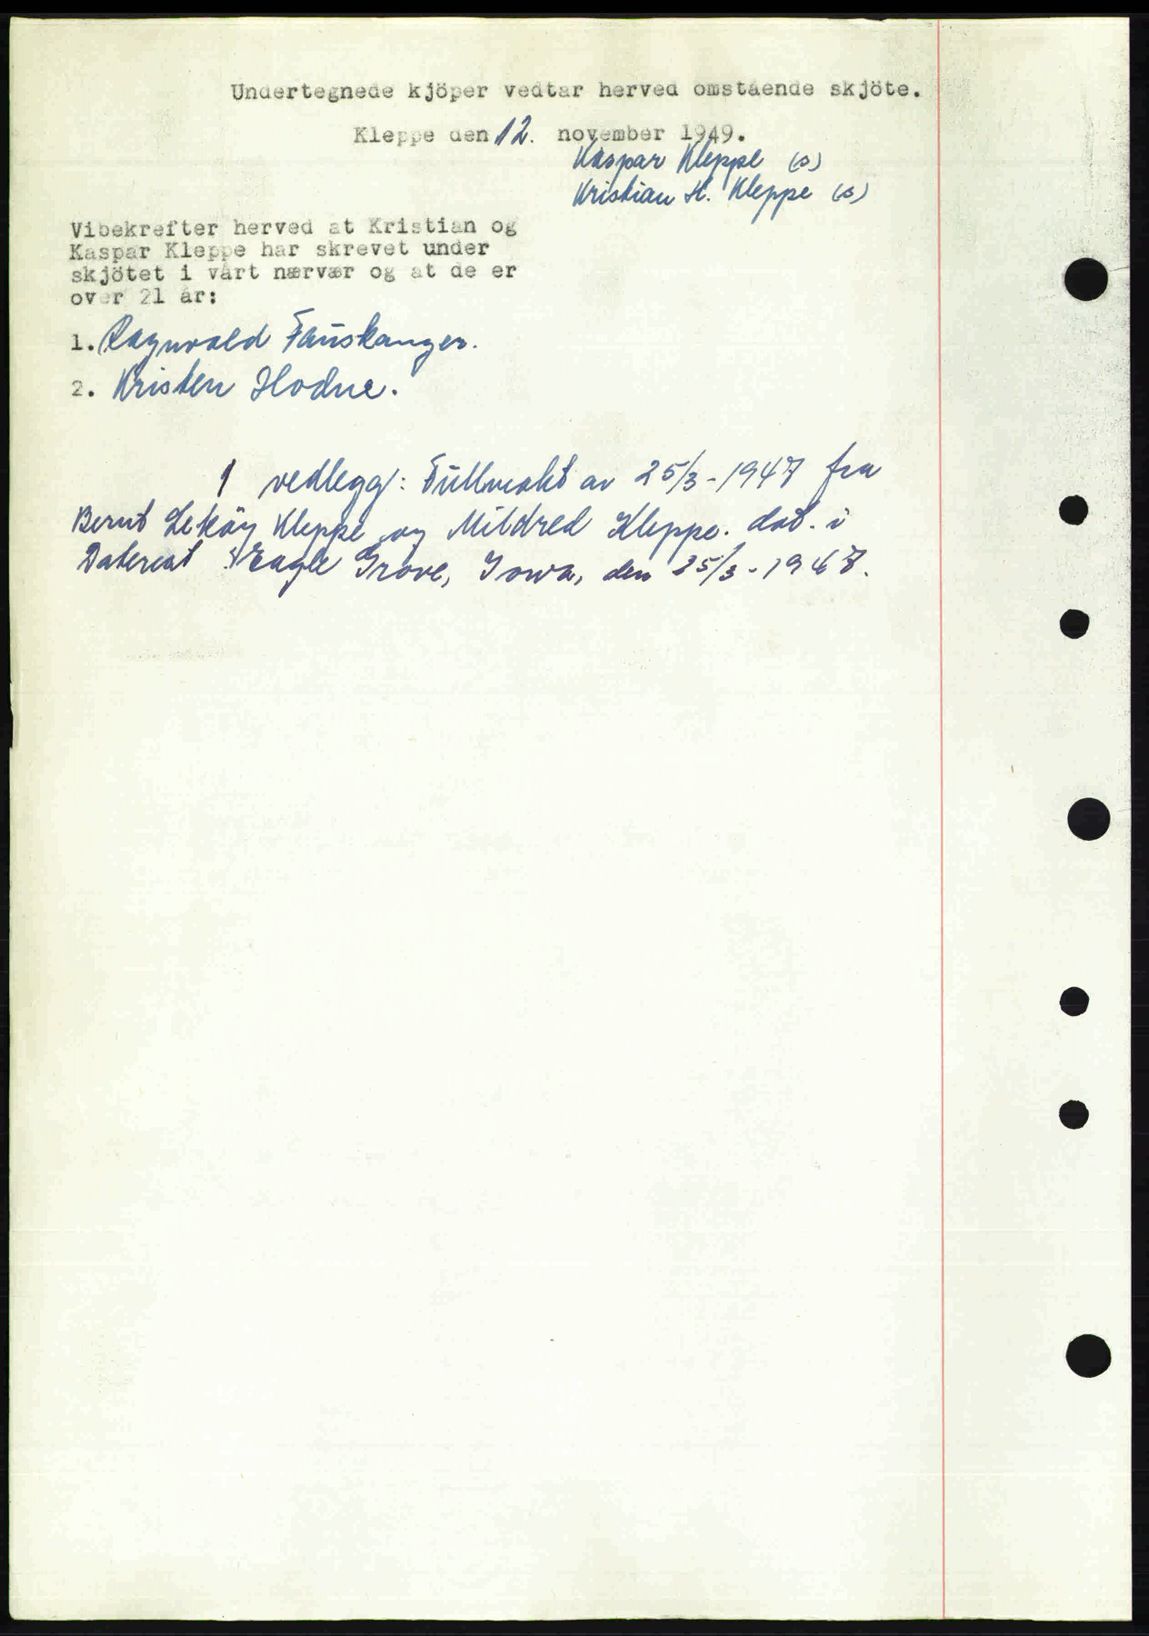 Undertegnede kjöper vedtar herved omstående skjöte.
Kleppe den 12. november 1949.
Kaspar Kleppe (s)
Kristian H. Kleppe (s)
Vibekrefter herved at Kristian og
Kaspar Kleppe har skrevet under
skjötet i vårt nærvær og at de er
over 21 år:
1. Ragnvald Fauskanger.
2. Kristen Hodne.
1 vedlegg: Fullmakt av 25/3-1947 fra
Bernt Kleppe og Mildred Kleppe. dat. i
Datereat Eagle Grove, Iowa, den 25/3-1947.